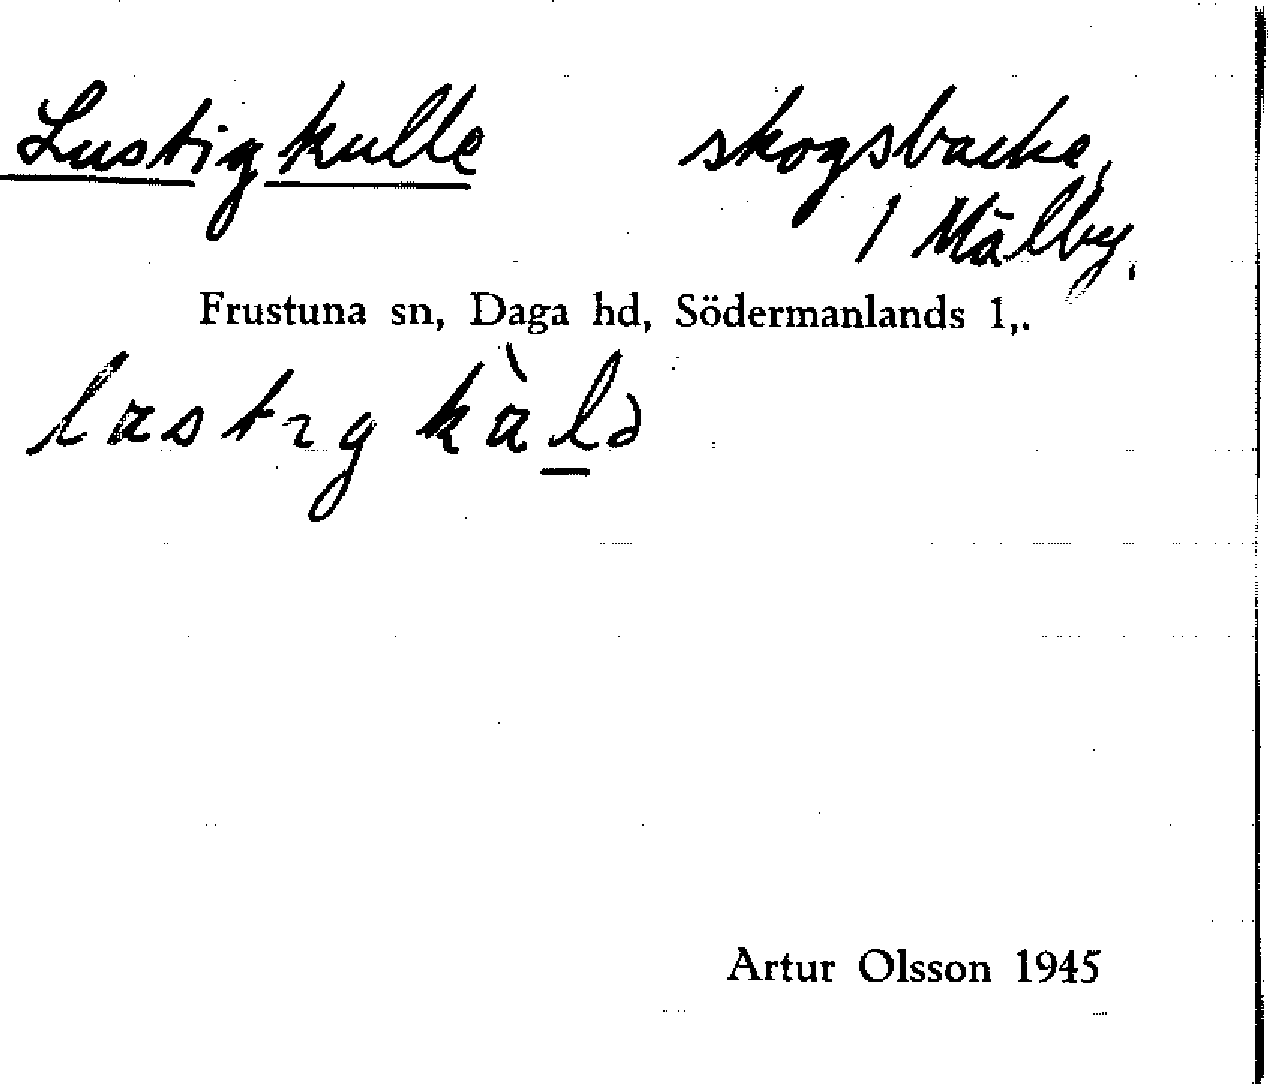 Lustigkulle skogsbacke,
1 Mälby.
Frustuna sn, Daga hd, Södermanlands l,.
Artur Olsson 1945